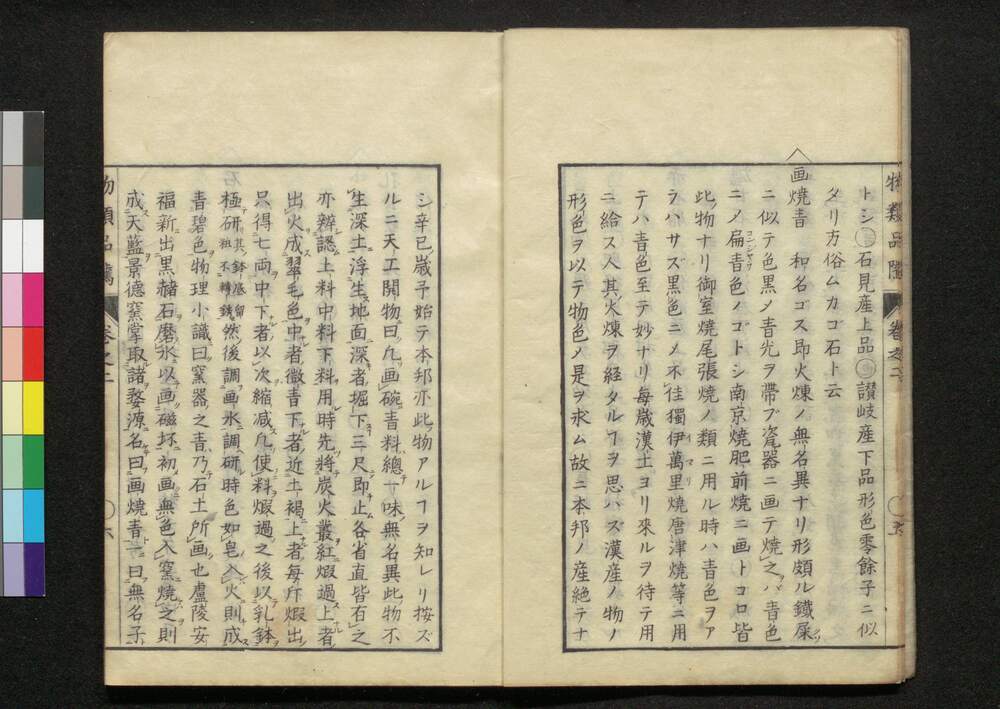 物類品隲 卷之二 〇五
トシ〇石見産上品〇讃岐産下品形色零餘子ニ似
タリ方俗ムカゴ石ト云
画燒青 和名ゴス即火煉ノ無名異ナリ形頗ル鐵屎
ニ似テ色黒メ青光ヲ帶ブ瓷器ニ画テ燒之バ青色
ニメ扁青色ノゴトシ南京燒肥前燒ニ画トコロ皆
此物ナリ御室燒尾張燒ノ類ニ用ル時ハ青色ヲア
ラハサズ黒色ニメ不佳獨伊萬里燒唐津燒等ニ用
テハ青色至テ妙ナリ毎歳漢土ヨリ來ルヲ待テ用
ニ給ス人其火煉ヲ経タルヿヲ思ハズ漢産ノ物ノ
形色ヲ以テ物色ノ是ヲ求ム故ニ本邦ノ産絶テナ
シ辛巳歳予始テ本邦亦此物アルヿヲ知レリ按ズ
ルニ天工開物曰凡画碗青料總一味無名異此物不
生深土浮生地面深者堀下三尺即止各省直皆有之
亦辨認上料中料下料用時先將炭火叢紅煆過上者
出火成翠毛色中者微青下者近土褐上者毎斤煆出
只得七兩中下者以次縮减凡使料煆過之後以乳鉢
極研其鉢底留粗不轉銹然後調画水調研時色如皂入火則成
青碧色物理小識曰窯器之青乃石土所画也盧陵安
福新出黒赭石磨水以画磁坯初画無色入窯燒之則
成天藍景德窯掌取諸婺源名曰画燒青一曰無名子
物類品隲 卷之二 〇六